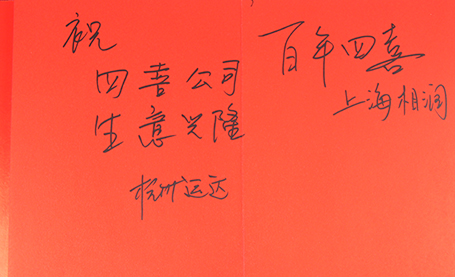 祝
四喜公司
生意兴隆
杭州运达
百年四喜
上海相润